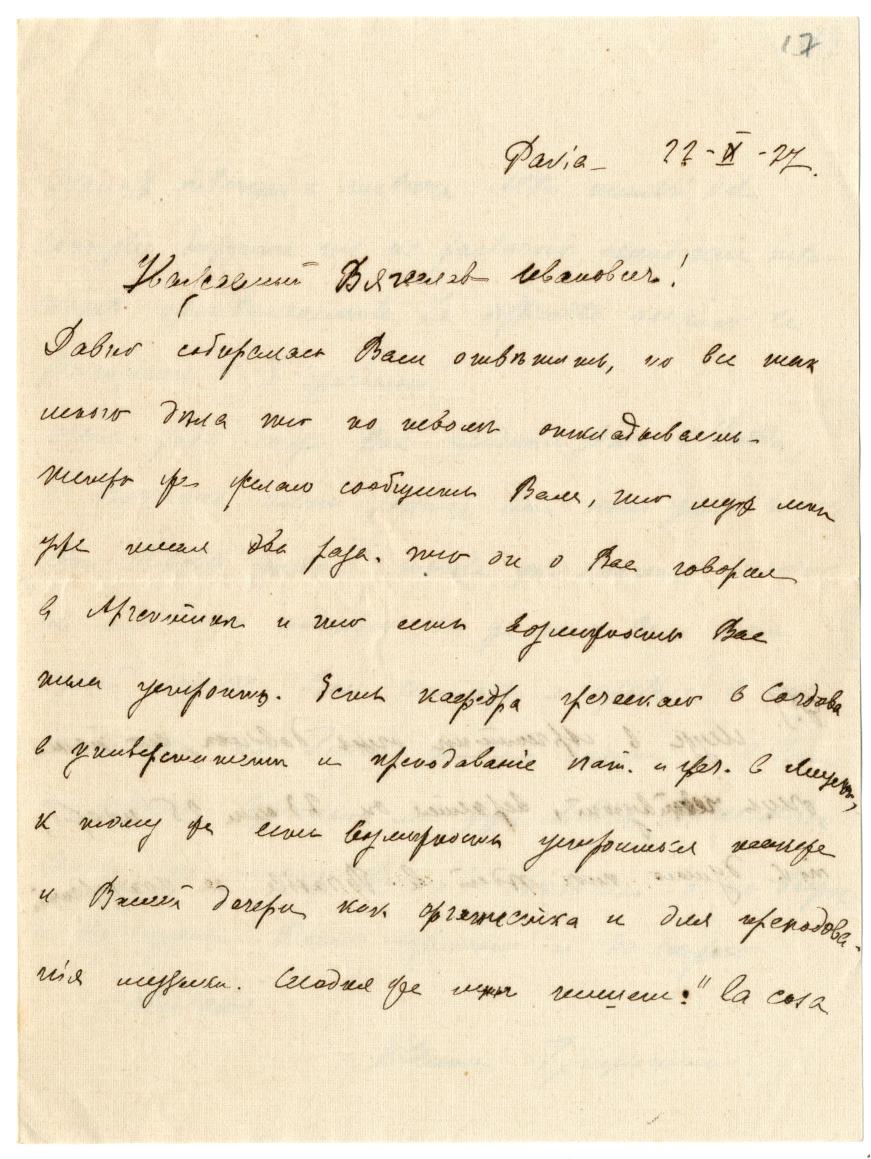 17
Pavia - 22-IX-27.
Уважаемый Вячеслав Иванович!
Давно собиралась Вам ответить, но все так
много дѣла что по неволѣ откладываешь-
теперь же желаю сообщить Вам, что муж мой
уже писал два раза. что он о Вас говорил
в Аргентинѣ и что есть возможность Вас
тама устроить. Есть кафедра греческаго в Cordova
в университетѣ и преподаваніе лат. и греч. в Лицеѣ,
к тому же есть возможность устроиться также
и Вашей дочери как органистка и для преподова-
нія музыки. Сегодня же мнѣ пишет: "la cosa